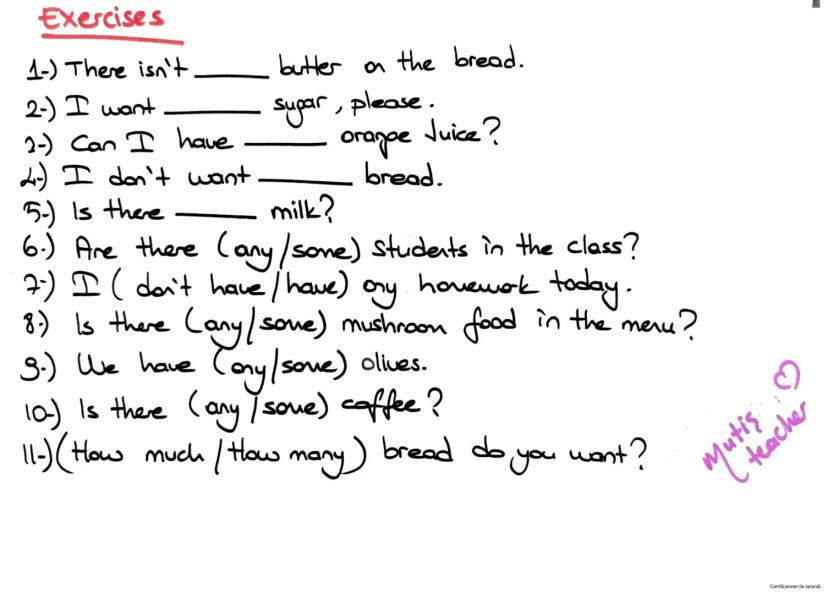 Exercises
1-) There isn't ______ butter on the bread.
2-) I want ______ sugar, please.
3-) Can I have ______ orange Juice?
4-) I don't want ______ bread.
5-) Is there ______ milk?
6-) Are there (any/some) students in the class?
7-) I (don't have/have) any homework today.
8-) Is there (any/some) mushroom food in the menu?
9-) We have (any/some) olives.
10-) Is there (any/some) coffee?
11-) (How much/How many) bread do you want?
Mutiş
teacher
CamScanner ile tarandı